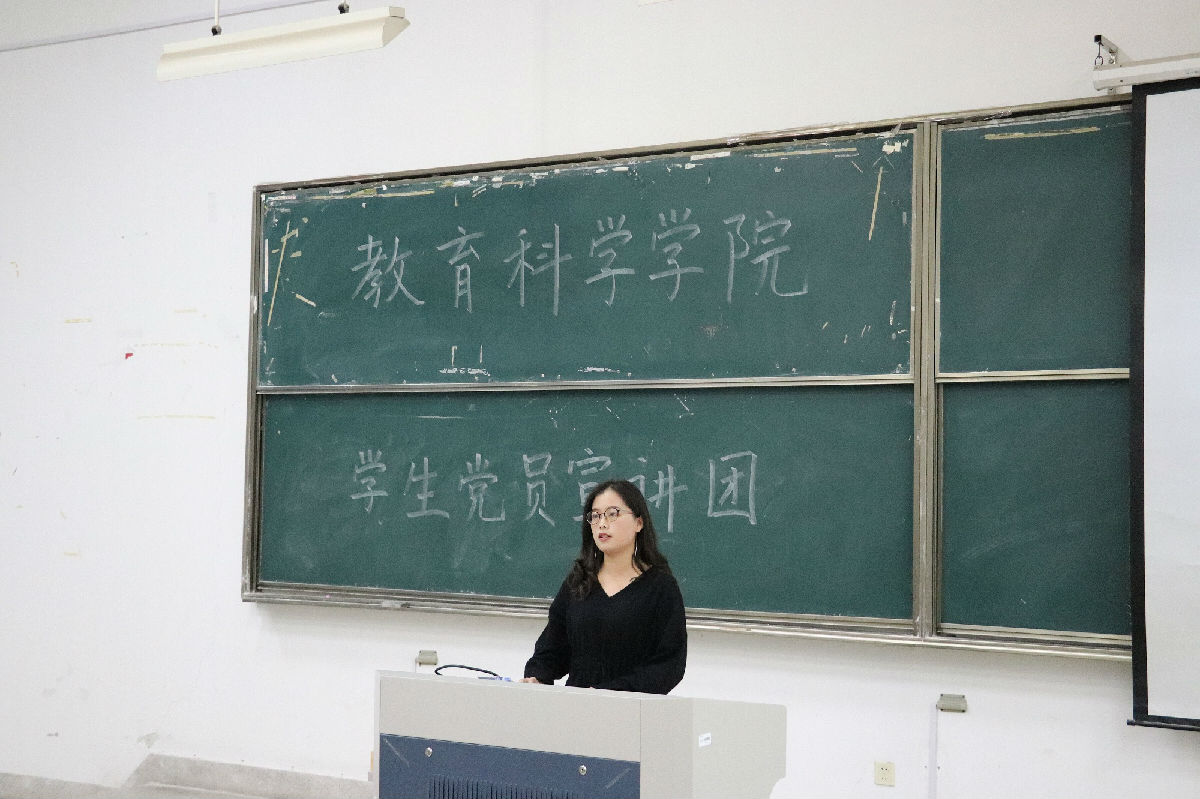 教育科学学院
学生党员宣讲团